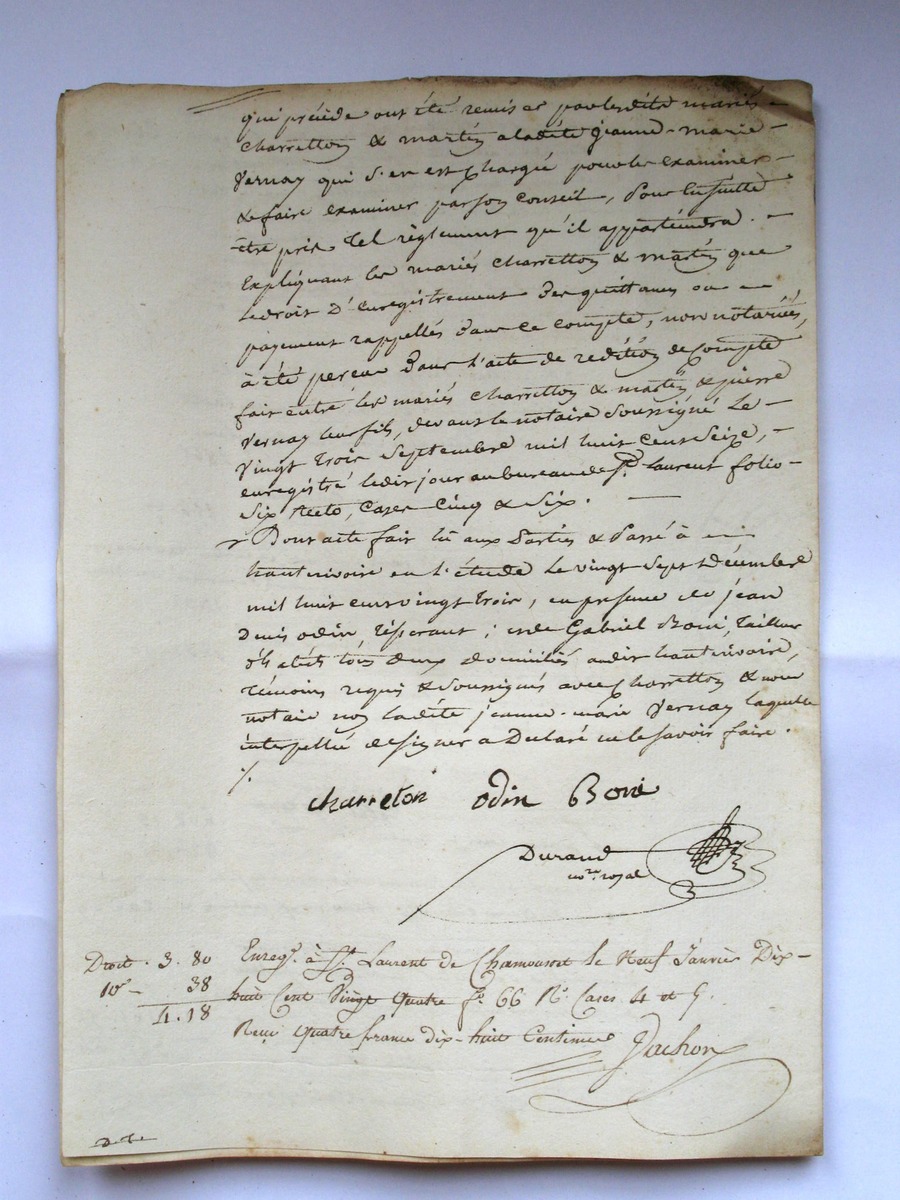 qui précède ont été remises par lesdits mariés -
Charretton & martin a ladite jeanne-marie -
Vernay qui s'en est chargée pour les examiner -
& faire examiner par son Conseil, pour Ensuitte
être pris tel règlement qu'il appartiendra. -
Expliquant les mariés Charretton & martin que
le droit d'Enregistrement des quittances ou -
payement rappellés dans ce compte, non notariés,
à été perçu dans l'acte de reddition de Compte
fait entre les mariés Charretton & martin & pierre
Vernay leur fils, devant le notaire soussigné le -
Vingt trois septembre mil huit cent seize, -
enregistré ledit jour au bureau de St. Laurent folio -
six recto, Cases Cinq & six. -
Dont acte fait lû aux Parties & Passé à
hauterivoire en l'étude le vingt sept décembre
mil huit cent vingt trois, en présence de jean
Denis odin, ; et de Gabriel Boni, Tailleur
d'habits tous deux domiciliés audit hauterivoire,
témoins requis & soussignés avec Charretton & nous
notaire non ladite jeanne-marie Vernay laquelle
interpellée de signer a Déclaré ne le savoir faire.
%
charreton odin Boni
Durand
nore. royal
Droit. 3. 80 Enregé. à St. Laurent de Chamousset le Neuf Janvier Dix-
10e - 38 huit Cent Vingt quatre fo. 66 Ro. Cases 4 et 5.
4.18 Reçu quatre francs dix-huit Centimes